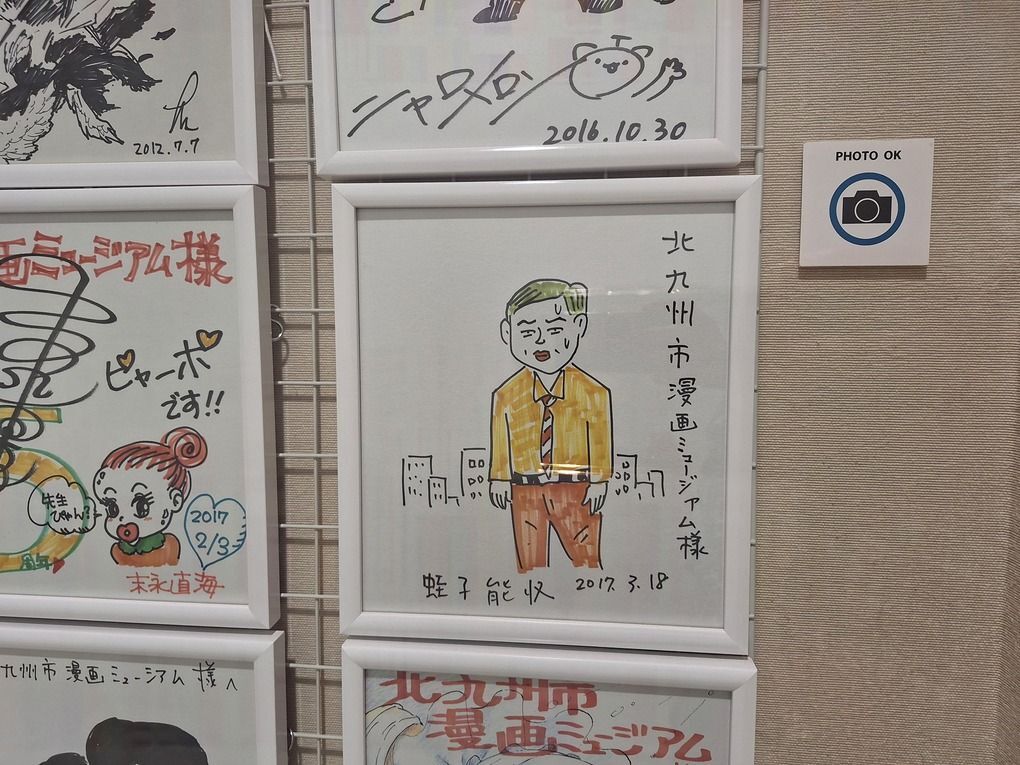 2012.7.7
シャロメロン
2016.10.30
PHOTO OK
画ミュージアム様
ピャーポ
です!!
先生
ぴゃん?
2017
2/3
周年
末永直海
北九州市漫画ミュージアム様
蛭子能収 2017.3.18
九州市漫画ミュージアム様へ
北九州市
漫画ミュージアム